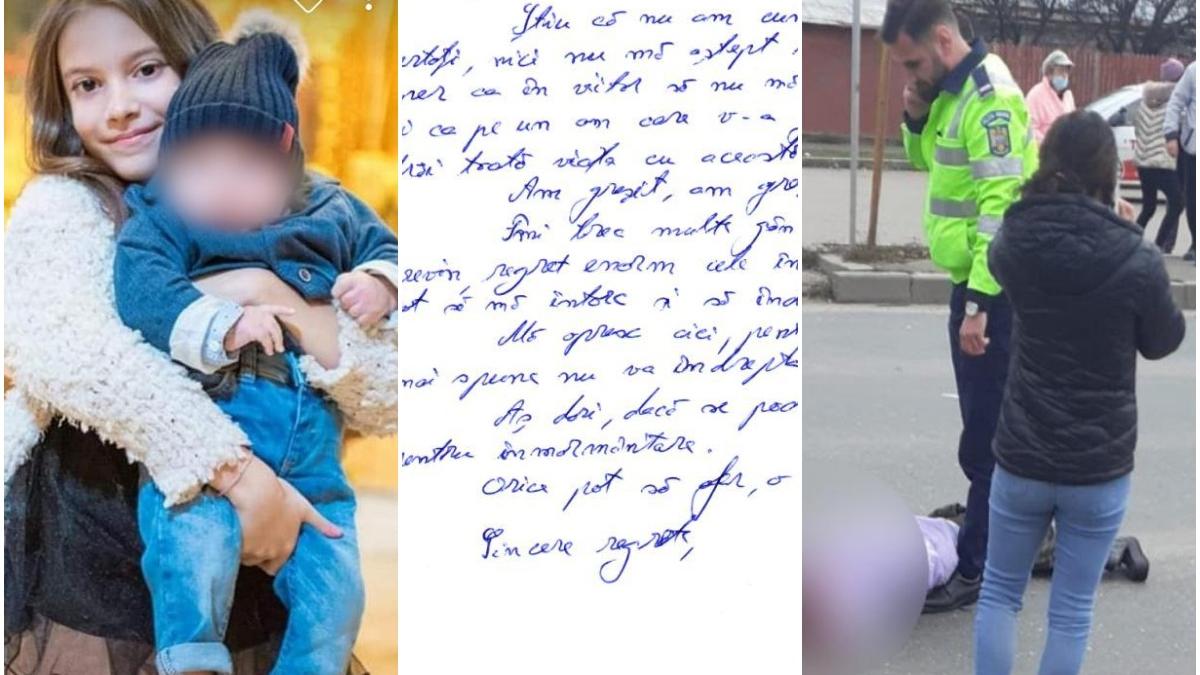 Știu că nu am cur
ertați, nici nu mă aștept
ner ca în viitor să nu mă
i ca pe un om care v-a
trăi toată viața cu această
Am greșit, am gre
Îmi trec multe gân
revin, regret enorm cele în
ot să mă întorc și să îna
Mă opresc aici, pent
mai spune nu va îndrepta
Aș dori, dacă se poa
entru înmormântare.
Orice pot să ofer, o
Sincere regrete,